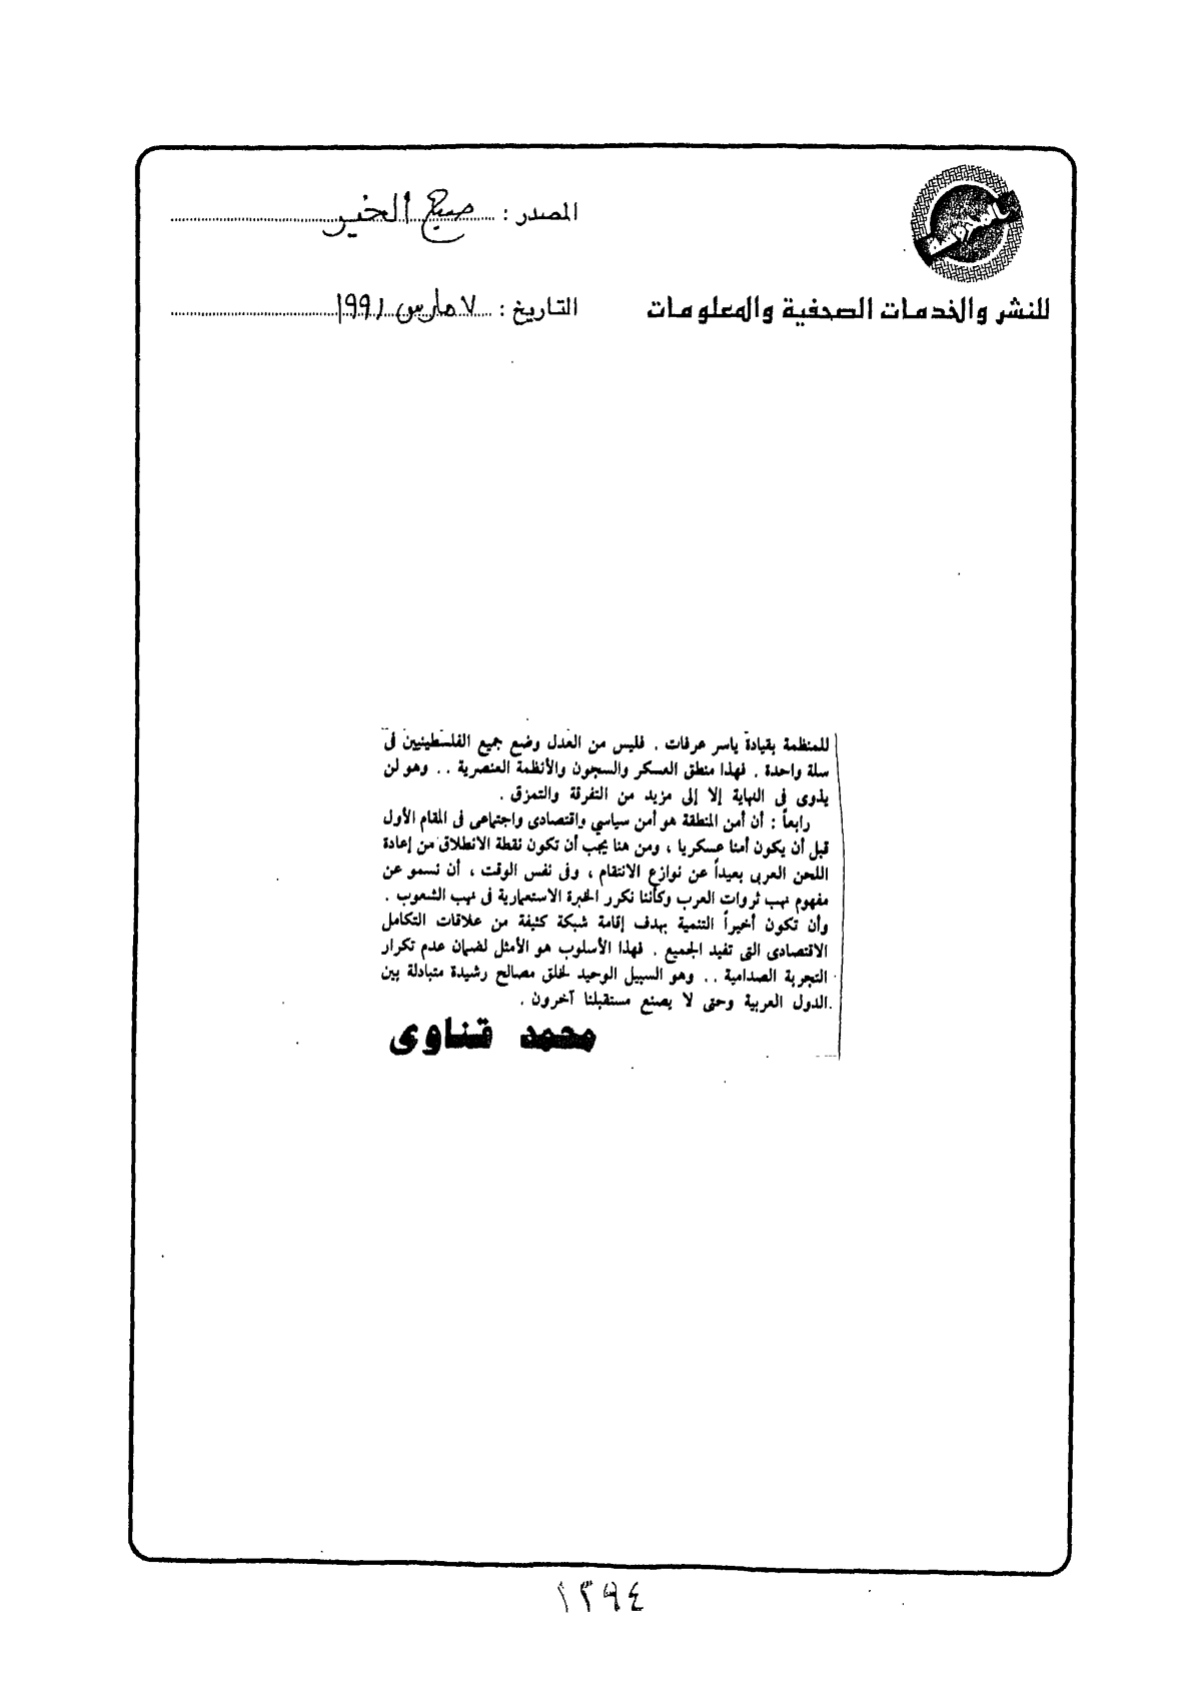 المصدر : صباح الخير
للنشر والخدمات الصحفية والمعلومات
التاريخ : ٧ مارس ١٩٩١
للمنظمة بقيادة ياسر عرفات . فليس من العدل وضع جميع الفلسطينيين فى
سلة واحدة . فهذا منطق العسكر والسجون والأنظمة العنصرية .. وهو لن
يذوى فى النهاية إلا إلى مزيد من التفرقة والتمزق .
رابعاً : أن أمن المنطقة هو أمن سياسي واقتصادى واجتماعى فى المقام الأول
قبل أن يكون أمنا عسكريا ، ومن هنا يجب أن تكون نقطة الانطلاق من إعادة
اللحن العربى بعيداً عن نوازع الانتقام ، وفى نفس الوقت ، أن نسمو عن
مفهوم نهب ثروات العرب وكأننا نكرر الخبرة الاستعمارية فى نهب الشعوب .
وأن تكون أخيراً التنمية بهدف إقامة شبكة كثيفة من علاقات التكامل
الاقتصادى التى تفيد الجميع . فهذا الأسلوب هو الأمثل لضمان عدم تكرار
التجربة الصدامية .. وهو السبيل الوحيد لخلق مصالح رشيدة متبادلة بين
الدول العربية وحتى لا يصنع مستقبلنا آخرون .
محمد قناوى
١٣٩٤